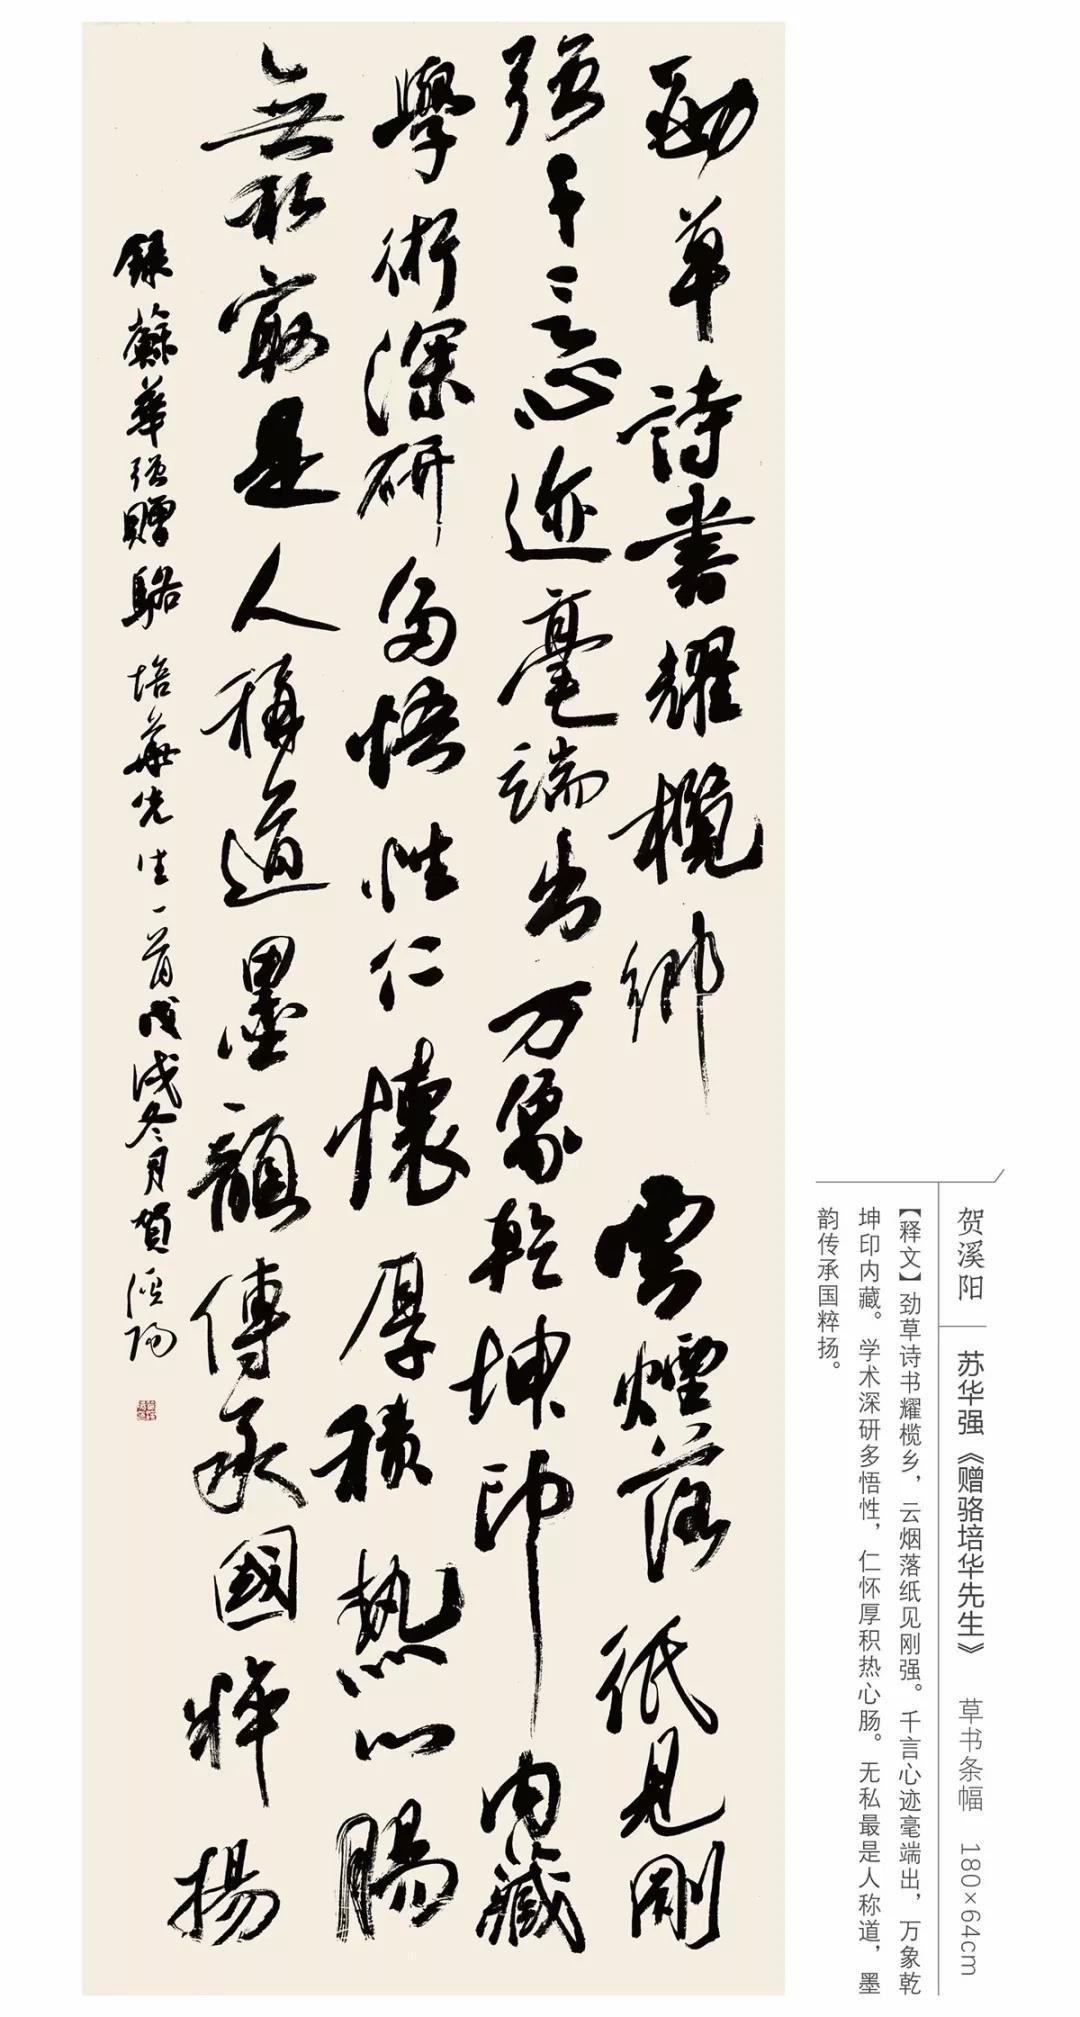 贺溪阳 苏华强《赠骆培华先生》 草书条幅 180×64cm
【释文】劲草诗书耀榄乡，云烟落纸见刚强。千言心迹毫端出，万象乾
坤印内藏。学术深研多悟性，仁怀厚积热心肠。无私最是人称道，墨
韵传承国粹扬。
勁草詩書耀欖鄉雲煙落紙見剛
强千言心迹毫端出万象乾坤印内藏
學術深研多悟性仁懷厚積熱心腸
無私最是人稱道墨韻傳承國粹揚
錄蘇華强贈駱培華先生一首戊戌冬月賀溪陽